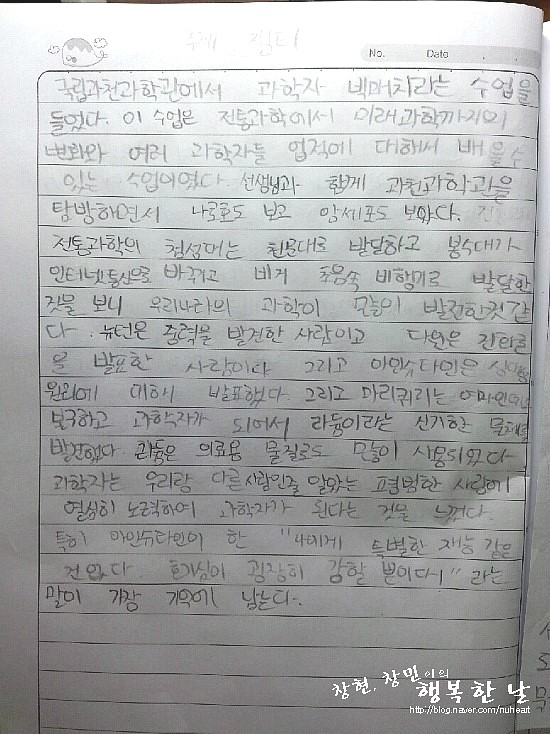 No. Date
국립과천과학관에서 과학자 벽퍼치라는 수업을
들었다. 이 수업은 전통과학에서 미래과학까지의
변화와 여러 과학자들 업적에 대해서 배울수
있는 수업이였다. 선생님과 함께 과천과학관을
탐방하면서 나로호도 보고 암세포도 보았다.
전통과학의 첨성대는 천문대로 발달하고 봉수대가
인터넷통신으로 바뀌고 비거 초음속 비행기로 발달한
것을 보니 우리나라의 과학이 많이 발전한것 같
다. 뉴턴은 중력을 발견한 사람이고 다윈은 진화론
을 발표한 사람이다 그리고 아인슈타인은
원리에 대해 발표했다. 그리고 마리퀴리는
불구하고 과학자가 되어서 라듐이라는 신기한 물체를
발견했다. 라듐은 의료용 물질로도 많이 사용되었다
과학자는 우리랑 다른사람인줄 알았는 평범한 사람에
열심히 노력하여 과학자가 된다는 것을 느꼈다.
특히 아인슈타인이 한 "나에게 특별한 재능 같은
건 없다. 호기심이 굉장히 강할 뿐이다" 라는
말이 가장 기억에 남는다.
창현, 창민이의
행복한 날
http://blog.naver.com/nuheart